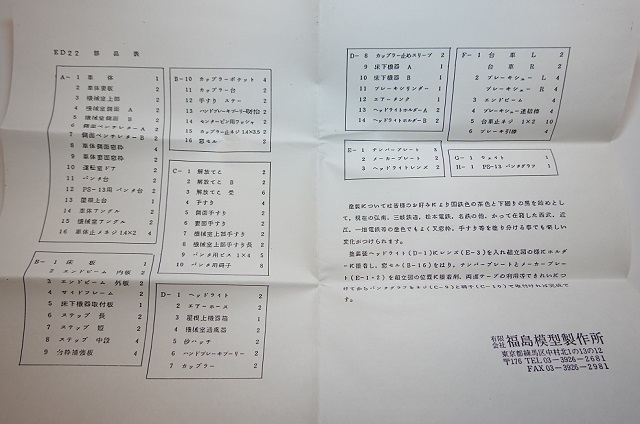 ED22 部品表
A- 1 車体 1
2 車体妻板 2
3 機械室上部 2
4 機械室側面 A 2
5 機械室側面 B 2
6 側面ベンチレターA 2
7 側面ベンチレターB 2
8 車体側面窓枠 4
9 車体妻面窓枠 2
10 運転室ドア 2
11 パンタ台 2
12 PS-13用 パンタ台 2
13 屋根上台 1
14 車体アングル 2
15 機械室アングル 2
16 車体止メネジ 1.4×3 2
B- 1 床板 1
2 エンドビーム 内板 2
3 エンドビーム 外板 2
4 サイドフレーム 2
5 床下機器取付板 1
6 ステップ 長 2
7 ステップ 短 2
8 ステップ 中段 4
9 台枠補強板 4
B-10 カップラーポケット 4
11 カップラー台 2
12 手すり ステー 2
13 ハンドブレーキプーリー取付台 2
14 センターピン用ワッシャ 2
15 カップラー止ネジ 1.4×3.5 2
16 窓セル 2
C- 1 解放てこ 2
2 解放てこ B 2
3 解放てこ 受 6
4 手すり 4
5 側面手すり 2
6 妻面手すり 2
7 機械室上部手すり 2
8 機械室上部手すり長 2
9 パンタ用ビス 1×4 5
10 パンタ用碍子 8
D- 1 ヘッドライト 2
2 エアーホース 2
3 屋根上機器箱 1
4 機械室通風器 2
5 砂ハッチ 2
6 ハンドブレーキプーリー 2
7 カップラー 2
D- 8 カップラー止めスリーブ 2
9 床下機器 A 1
10 床下機器 B 1
11 ブレーキシリンダー 1
12 エアータンク 1
13 ヘッドライトホルダーA 2
14 ヘッドライトホルダーB 2
E- 1 ナンバープレート 3
2 メーカープレート 2
3 ヘッドライトレンズ 2
F- 1 台車 L 2
台車 R 2
2 ブレーキシュー L 4
ブレーキシュー R 4
3 エンドビーム 4
4 ブレーキシュー連結棒 4
5 台車止ネジ 1×2 10
6 ブレーキ引棒 4
G- 1 ウェイト 1
H- 1 PS-13 パンタグラフ 1
塗装については皆様のお好みにより国鉄色の茶色と下廻りの黒を始めとし
て、現在の弘南、三岐鉄道、松本電鉄、名鉄の他、かって在籍した西武、近
江、一畑電鉄等の塗色でもよく又窓枠、手すり等を塗り分ける事でも楽しい
変化がつけられます。
塗装後ヘッドライト(D-1)にレンズ(E-3)を入れ組立図の様にホルダー
に接着し、窓セル(B-16)をはり、ナンバープレートとメーカープレー
ト(E-1・2)を組立図の位置に接着剤、両面テープの利用等できれいにつ
です。
有限会社 福島模型製作所
東京都練馬区中村北1の13の12
〒176 TEL 03-3926-2681
FAX 03-3926-2981